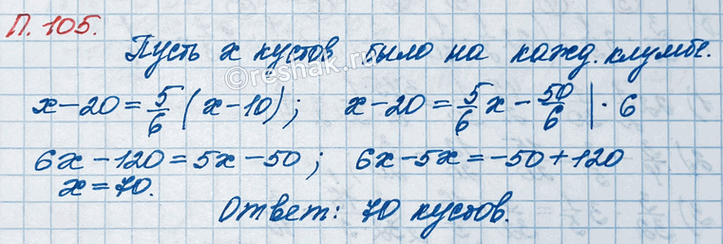 П. 105.
Пусть x кустов было на кажд. клумбе.
x – 20 = 5/6 (x – 10); x – 20 = 5/6 x – 50/6 | · 6
6x – 120 = 5x – 50; 6x – 5x = –50 + 120
x = 70.
Ответ: 70 кустов.
©reshak.ru